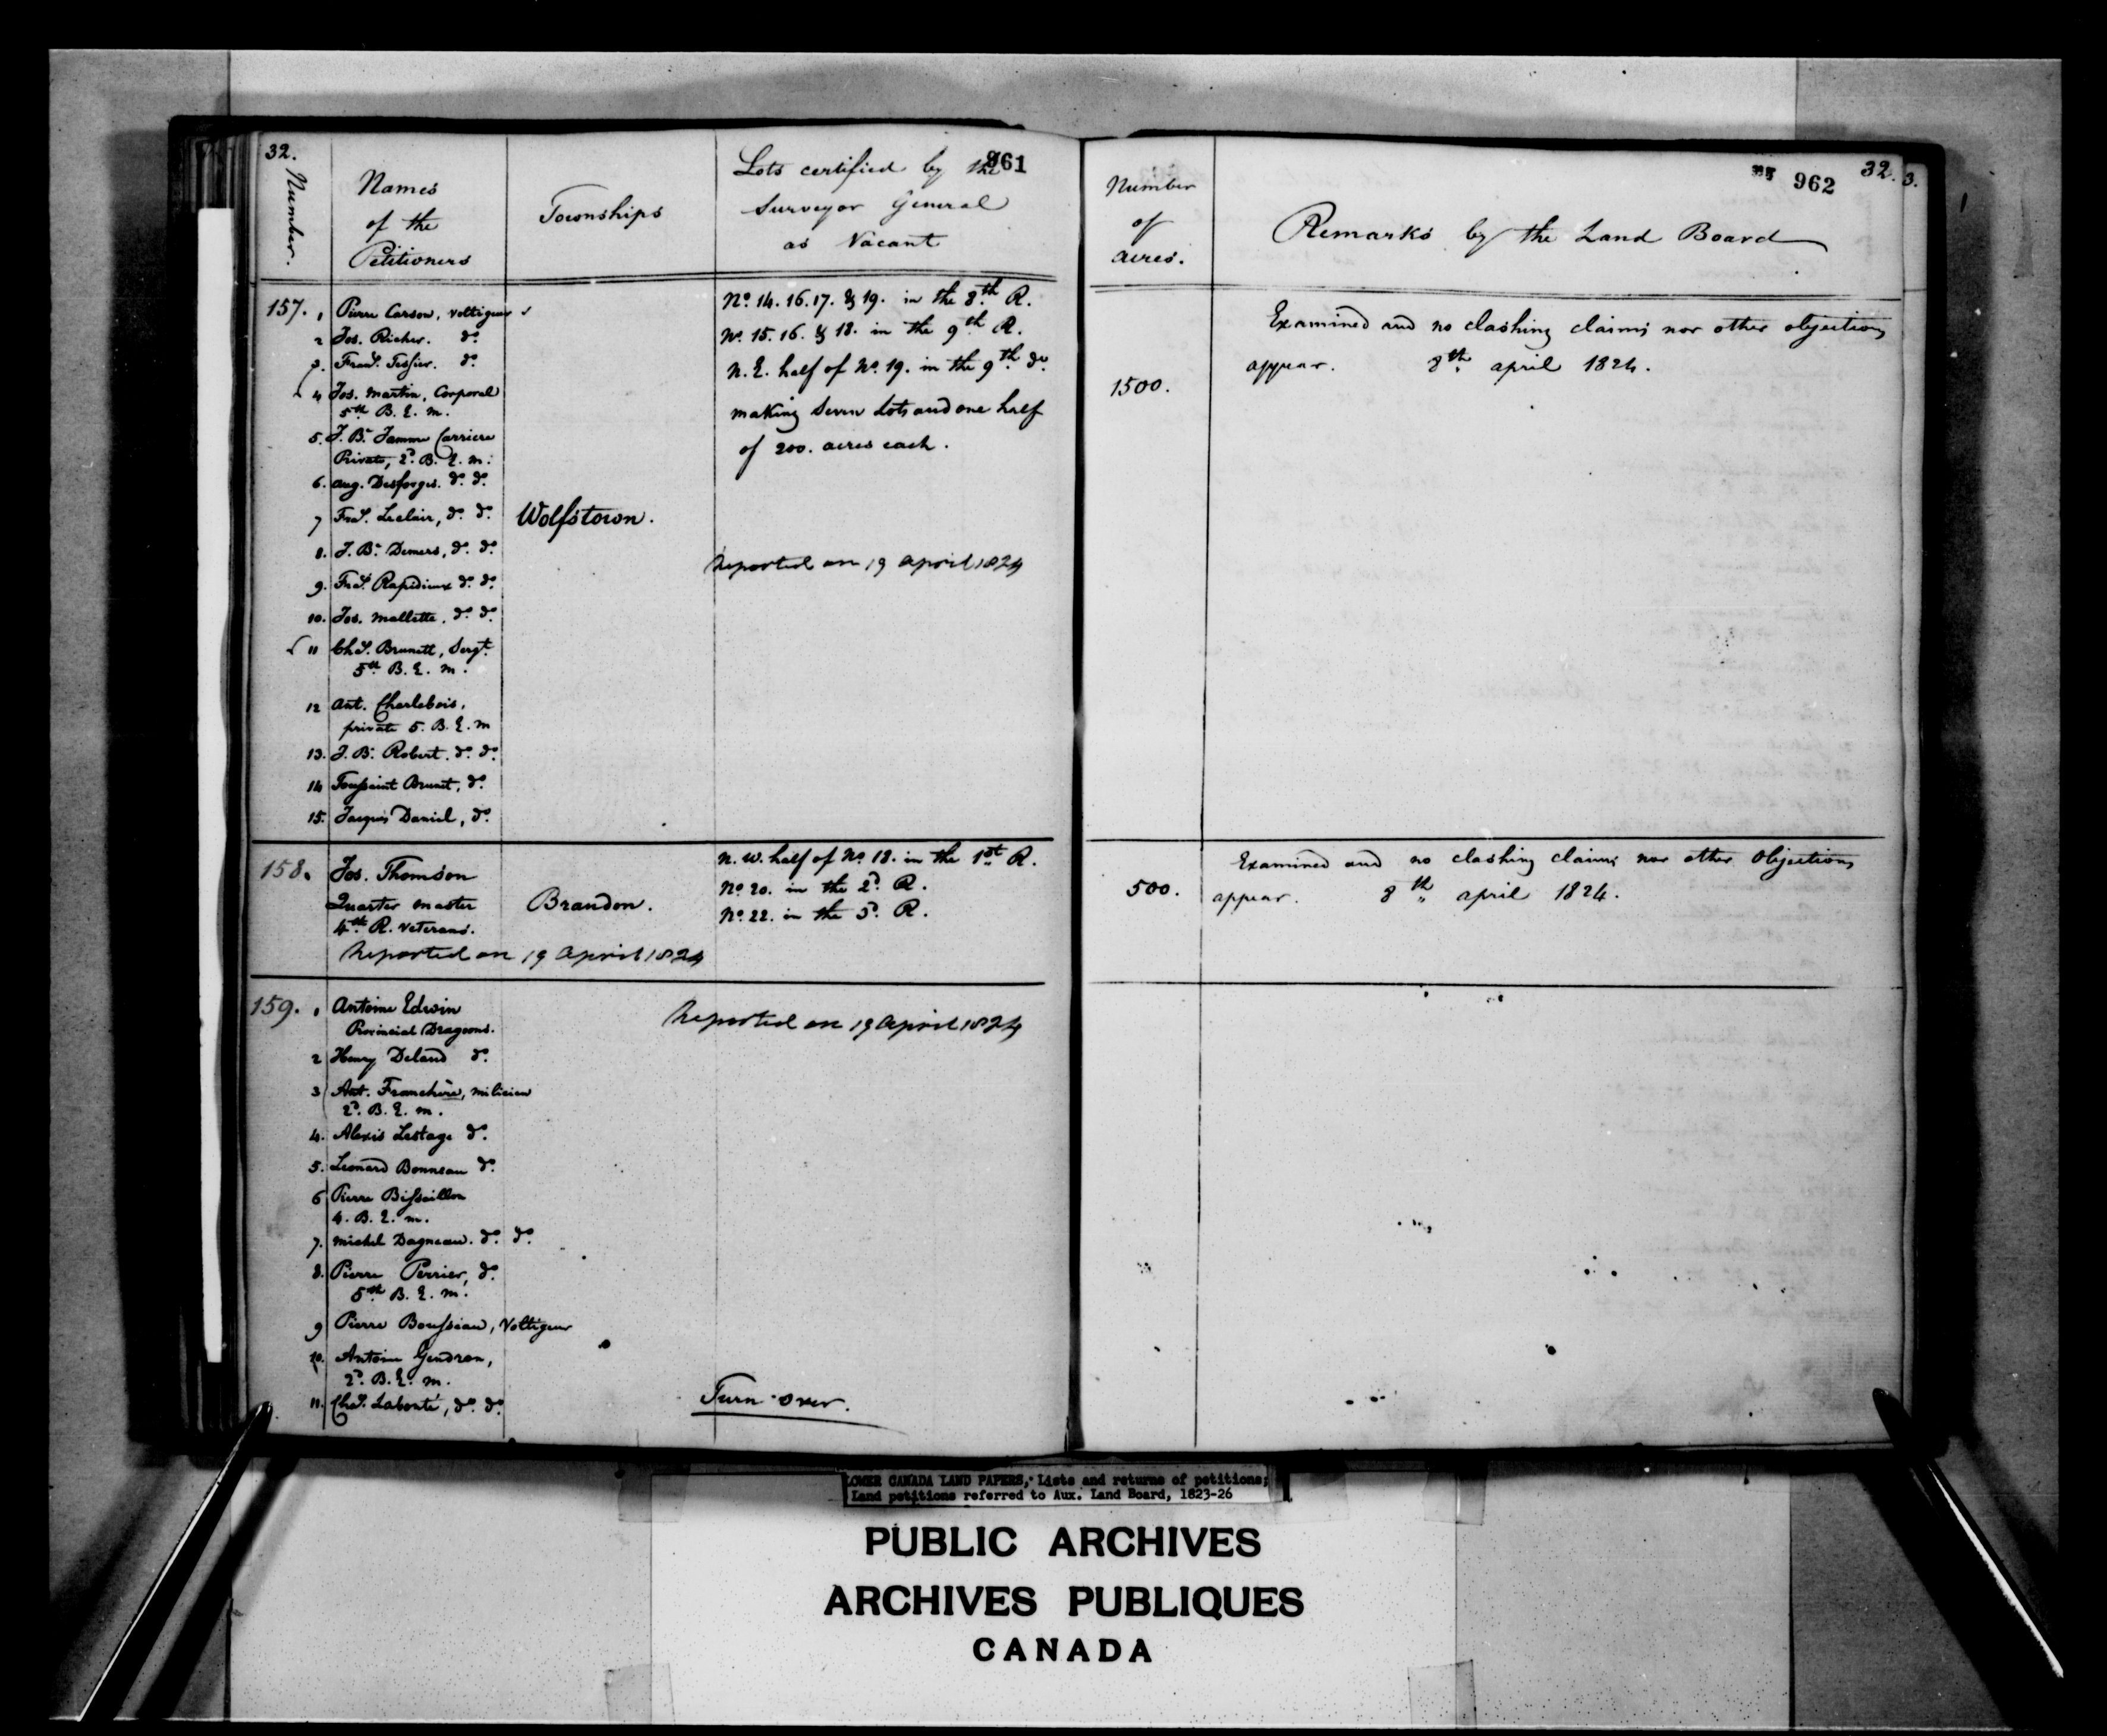 32.
961
Number.
Names
of the
Petitioners
Townships
Lots certified by the
Surveyor General
as Vacant
157. 1 Pierre Carson, Voltigeur
2 Jos. Richer. do.
3. Frans. Tessier. do.
4 Jos. Martin, Corporal
5th B. E. M.
5. J. Bt. Jamme Carriere
Private, 2d. B. E. M.
6. Aug. Desforges. do. do.
7 Frs. Leclair, do. do.
8. J. Bt. Demers, do. do.
9. Frs. Rapidieux do. do.
10. Jos. Mallette. do. do.
11 Chs. Brunett, Sergt.
5th B. E. M.
12 Ant. Charlebois,
private 5. B. E. M
13. J. Bt. Robert. do. do.
14 Toussaint Brunet, do.
15. Jacques Daniel, do.
Wolfstown.
No. 14. 16. 17. & 19. in the 8th. R.
No. 15. 16. & 18. in the 9th R.
N. E. half of No. 19. in the 9th. do.
making Seven Lots and one half
of 200. acres each.
Reported on 19 April 1824
158. Jos. Thomson
Quarter Master
4th R. Veterans.
Brandon.
N. W. half of No. 18. in the 1st R.
No. 20. in the 2d. R.
No. 22. in the 5. R.
Reported on 19 April 1824
159. 1 Antoine Edwin
Provincial Dragoons.
2 Henry Deland do.
3 Ant. Franchère, Milicien
2d. B. E. M.
4. Alexis Lestage do.
5. Leonard Bonneau do.
6 Pierre Bissaillon
4. B. E. M.
7. Michel Dagneau. do. do.
8. Pierre Perrier, do.
5th B. E. M.
9 Pierre Bousseau, Voltigeur
10. Antoine Gendron,
2d. B. E. M.
11. Chs. Labonté, do. do.
Reported on 19 April 1824
Turn over.
962
32.
3.
Number
of
acres.
Remarks by the Land Board
1500.
Examined and no clashing claims nor other objections
appear. 8th. April 1824.
500.
Examined and no clashing claims nor other Objections
appear. 8th April 1824.
LOWER CANADA LAND PAPERS, Lists and returns of petitions;
Land petitions referred to Aux. Land Board, 1823-26
PUBLIC ARCHIVES
ARCHIVES PUBLIQUES
CANADA